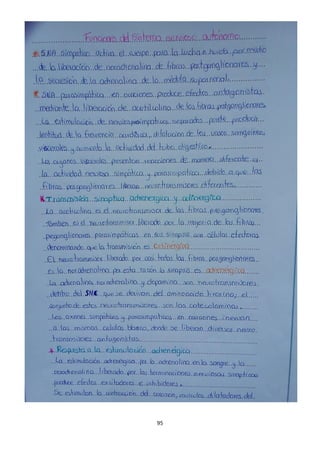 Funciones del Sistema nervioso autónomo
SNA Simpático activa el cuerpo para la lucha o huida por medio
de la liberación de noradrenalina de fibras postganglionares y
la secreción de la adrenalina de la médula suprarrenal.
SNA parasimpatica en ocaciones produce efectos antagonistas
mediante la liberación de acetilcolina de las fibras postganglionares
La estimulación de nervios parasimpaticos separados puede producir
lentitud de la frecuencia cardiaca, dilatacion de los vasos sanguineos
viscerales y aumenta la actividad del tubo digestivo.
Los organos viscerales presentan reacciones de manera diferente a
la actividad nerviosa simpatica y parasimpatica debido a que las
fibras postganglionares liberan neurotransmisores diferentes.
Transmisión sinaptica adrenergica y colinergica
La acetilcolina es el neurotransmisor de las fibras preganglionares
Tambien es el neurotransmisor liberado por la mayoria de las fibras
posganglionares parasimpáticas en sus sinapsis con células efectoras
denominando que la transmisión es colinergica
El neurotransmisor liberado por casi todas las fibras posganglionares
es la noradrenalina por esta razón la sinapsis es adrenergica
La adrenalina, noradrenalina y dopamina son neurotransmisores
dentro del SNC que se derivan del aminoacido tirosina, el
conjunto de estos neurotransmisores son las catecolaminas.
Los axones simpaticos y parasimpaticos en ocasiones inervan
a las mismas celulas blanco, donde se liberan diversos neuro
transmisores antagonistas
Respuesta a la estimulación adrenergica
La estimulación adrenérgica por la adrenalina en la sangre y la
noradrenalina liberada por las terminaciones nerviosas simpaticas
produce efectos excitadores e inhibidores.
Se estimulan la contracción del corazon, musculos dilatadores del
95